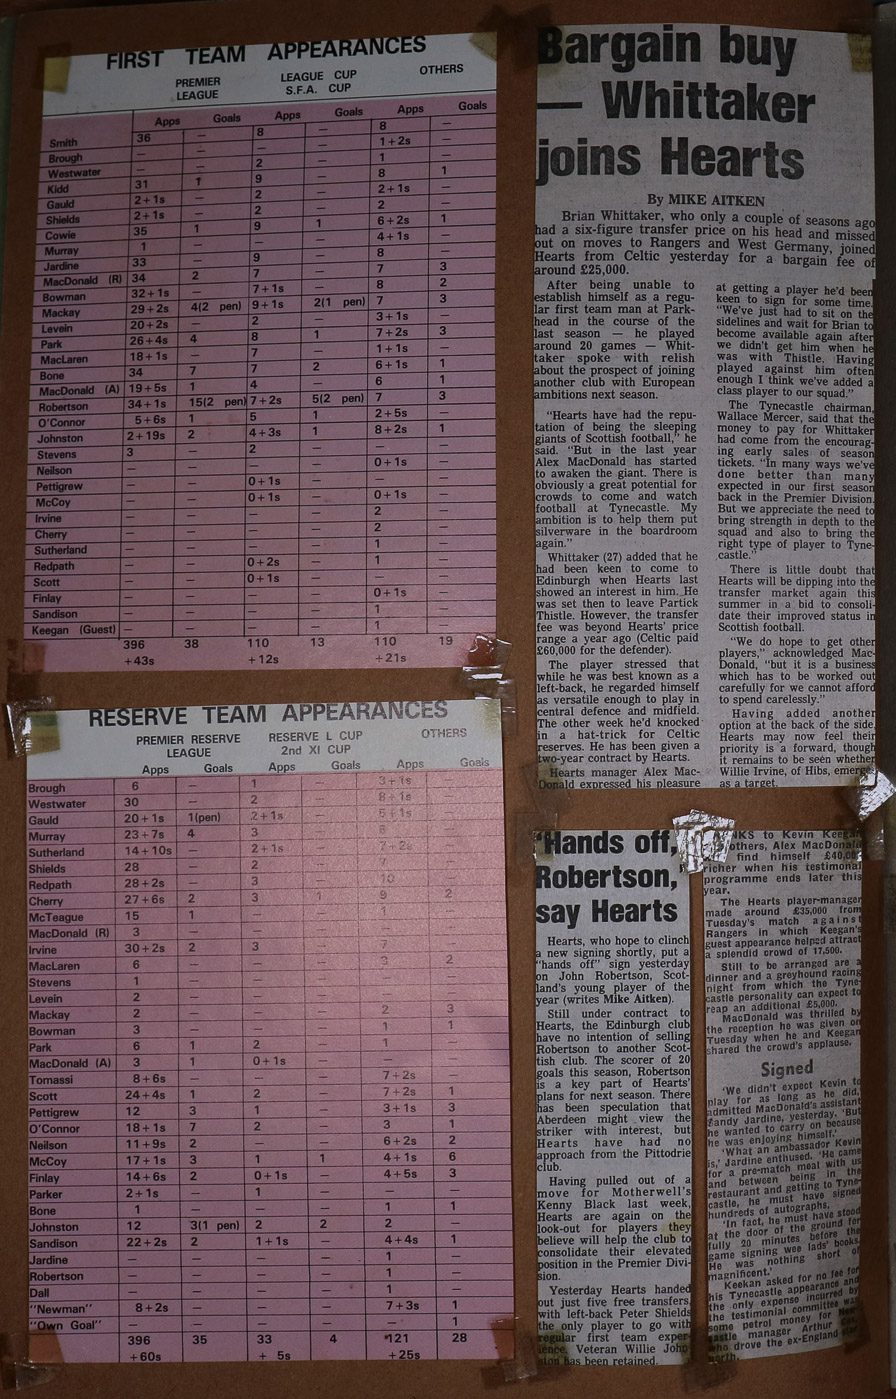 FIRST TEAM APPEARANCES
PREMIER LEAGUE CUP OTHERS
LEAGUE S.F.A. CUP
Apps Goals Apps Goals Apps Goals
Smith 36 — 8 — 8 —
Brough — — — — 1+2s —
Westwater — — 2 — 1 —
Kidd 31 1 9 — 8 1
Gauld 2+1s — 2 — 2+1s —
Shields 2+1s — 2 — 2 —
Cowie 35 1 9 1 6+2s 1
Murray 1 — — — 4+1s —
Jardine 33 — 9 — 8 —
MacDonald (R) 34 2 7 — 7 3
Bowman 32+1s — 7+1s — 8 2
Mackay 29+2s 4(2 pen) 9+1s 2(1 pen) 7 3
Levein 20+2s — 2 — 3+1s —
Park 26+4s 4 8 1 7+2s 3
MacLaren 18+1s — 7 — 1+1s —
Bone 34 7 7 2 6+1s 1
MacDonald (A) 19+5s 1 4 — 6 1
Robertson 34+1s 15(2 pen) 7+2s 5(2 pen) 7 3
O'Connor 5+6s 1 5 1 2+5s —
Johnston 2+19s 2 4+3s 1 8+2s 1
Stevens 3 — 2 — — —
Neilson — — — — 0+1s —
Pettigrew — — 0+1s — — —
McCoy — — 0+1s — 0+1s —
Irvine — — — — 2 —
Cherry — — — — 2 —
Sutherland — — — — 1 —
Redpath — — 0+2s — 1 —
Scott — — 0+1s — — —
Finlay — — — — 0+1s —
Sandison — — — — 1 —
Keegan (Guest) — — — — 1 —
396 38 110 13 110 19
+43s +12s +21s
RESERVE TEAM APPEARANCES
PREMIER RESERVE RESERVE L CUP OTHERS
LEAGUE 2nd XI CUP
Apps Goals Apps Goals Apps Goals
Brough 6 — 1 — 3+1s —
Westwater 30 — 2 — 8+1s —
Gauld 20+1s 1(pen) 2+1s — 5+1s —
Murray 23+7s 4 3 — 6+1s —
Sutherland 14+10s — 2+1s — 7+2s —
Shields 28 — 2 — 7 —
Redpath 28+2s — 3 — 10 —
Cherry 27+6s 2 3 1 9 2
McTeague 15 1 — — 1 —
MacDonald (R) 3 — — — — —
Irvine 30+2s 2 3 — 7 —
MacLaren 6 — — — 3 2
Stevens 1 — — — — —
Levein 2 — — — — —
Mackay 2 — — — 2 3
Bowman 3 — — — 1 1
Park 6 1 2 — 1 —
MacDonald (A) 3 1 0+1s — — —
Tomassi 8+6s — — — 7+2s —
Scott 24+4s 1 2 — 7+2s 1
Pettigrew 12 3 1 — 3+1s 3
O'Connor 18+1s 7 2 — 3 1
Neilson 11+9s 2 — — 6+2s 2
McCoy 17+1s 3 1 1 4+1s 6
Finlay 14+6s 2 0+1s — 4+5s 3
Parker 2+1s — 1 — — —
Bone 1 — — — 1 1
Johnston 12 3(1 pen) 2 2 2 —
Sandison 22+2s 2 1+1s — 4+4s 1
Jardine — — — — 1 —
Robertson — — — — 1 —
Dall — — — — 1 —
"Newman" 8+2s — — — 7+3s 1
"Own Goal" — — — — — 1
396 35 33 4 *121 28
+60s + 5s +25s
Bargain buy
— Whittaker
joins Hearts
By MIKE AITKEN
Brian Whittaker, who only a couple of seasons ago
had a six-figure transfer price on his head and missed
out on moves to Rangers and West Germany, joined
Hearts from Celtic yesterday for a bargain fee of
around £25,000.
After being unable to
establish himself as a regu-
lar first team man at Park-
head in the course of the
last season — he played
around 20 games — Whit-
taker spoke with relish
about the prospect of joining
another club with European
ambitions next season.
"Hearts have had the repu-
tation of being the sleeping
giants of Scottish football," he
said. "But in the last year
Alex MacDonald has started
to awaken the giant. There is
obviously a great potential for
crowds to come and watch
football at Tynecastle. My
ambition is to help them put
silverware in the boardroom
again."
Whittaker (27) added that he
had been keen to come to
Edinburgh when Hearts last
showed an interest in him. He
was set then to leave Partick
Thistle. However, the transfer
fee was beyond Hearts' price
range a year ago (Celtic paid
£60,000 for the defender).
The player stressed that
while he was best known as a
left-back, he regarded himself
as versatile enough to play in
central defence and midfield.
The other week he'd knocked
in a hat-trick for Celtic
reserves. He has been given a
two-year contract by Hearts.
Hearts manager Alex Mac-
Donald expressed his pleasure
at getting a player he'd been
keen to sign for some time.
"We've just had to sit on the
sidelines and wait for Brian to
become available again after
we didn't get him when he
was with Thistle. Having
played against him often
enough I think we've added a
class player to our squad."
The Tynecastle chairman,
Wallace Mercer, said that the
money to pay for Whittaker
had come from the encourag-
ing early sales of season
tickets. "In many ways we've
done better than many
expected in our first season
back in the Premier Division.
But we appreciate the need to
bring strength in depth to the
squad and also to bring the
right type of player to Tyne-
castle."
There is little doubt that
Hearts will be dipping into the
transfer market again this
summer in a bid to consoli-
date their improved status in
Scottish football.
"We do hope to get other
players," acknowledged Mac-
Donald, "but it is a business
which has to be worked out
carefully for we cannot afford
to spend carelessly."
Having added another
option at the back of the side,
Hearts may now feel their
priority is a forward, though
it remains to be seen whether
Willie Irvine, of Hibs, emerges
as a target.
'Hands off,
Robertson,'
say Hearts
Hearts, who hope to clinch
a new signing shortly, put a
"hands off" sign yesterday
on John Robertson, Scot-
land's young player of the
year (writes Mike Aitken).
Still under contract to
Hearts, the Edinburgh club
have no intention of selling
Robertson to another Scot-
tish club. The scorer of 20
goals this season, Robertson
is a key part of Hearts'
plans for next season. There
has been speculation that
Aberdeen might view the
striker with interest, but
Hearts have had no
approach from the Pittodrie
club.
Having pulled out of a
move for Motherwell's
Kenny Black last week,
Hearts are again on the
look-out for players they
believe will help the club to
consolidate their elevated
position in the Premier Divi-
sion.
Yesterday Hearts handed
out just five free transfers,
with left-back Peter Shields
the only player to go with
regular first team exper-
ience. Veteran Willie John-
ston has been retained.
to Kevin Keegan
others, Alex MacDonald
find himself £40,000
richer when his testimonial
programme ends later this
year.
The Hearts player-manager
made around £35,000 from
Tuesday's match against
Rangers in which Keegan's
guest appearance helped attract
a splendid crowd of 17,500.
Still to be arranged are a
dinner and a greyhound racing
night from which the Tyne-
castle personality can expect to
reap an additional £5,000.
MacDonald was thrilled by
the reception he was given on
Tuesday when he and Keegan
shared the crowd's applause.
Signed
'We didn't expect Kevin to
play for as long as he did,'
admitted MacDonald's assistant
Sandy Jardine, yesterday. 'But
he wanted to carry on because
he was enjoying himself.'
'What an ambassador Kevin
is,' Jardine enthused. 'He came
for a pre-match meal with us
and between being in the
restaurant and getting to Tyne-
castle, he must have signed
hundreds of autographs.
'In fact, he must have stood
at the door of the ground for
fully 20 minutes before the
game signing wee lads' books.
He was nothing short of
magnificent.'
Keekan asked for no fee for
his Tynecastle appearance and
the only expense incurred by
the testimonial committee was
some petrol money for New-
castle manager Arthur Cox,
who drove the ex-England star
north.